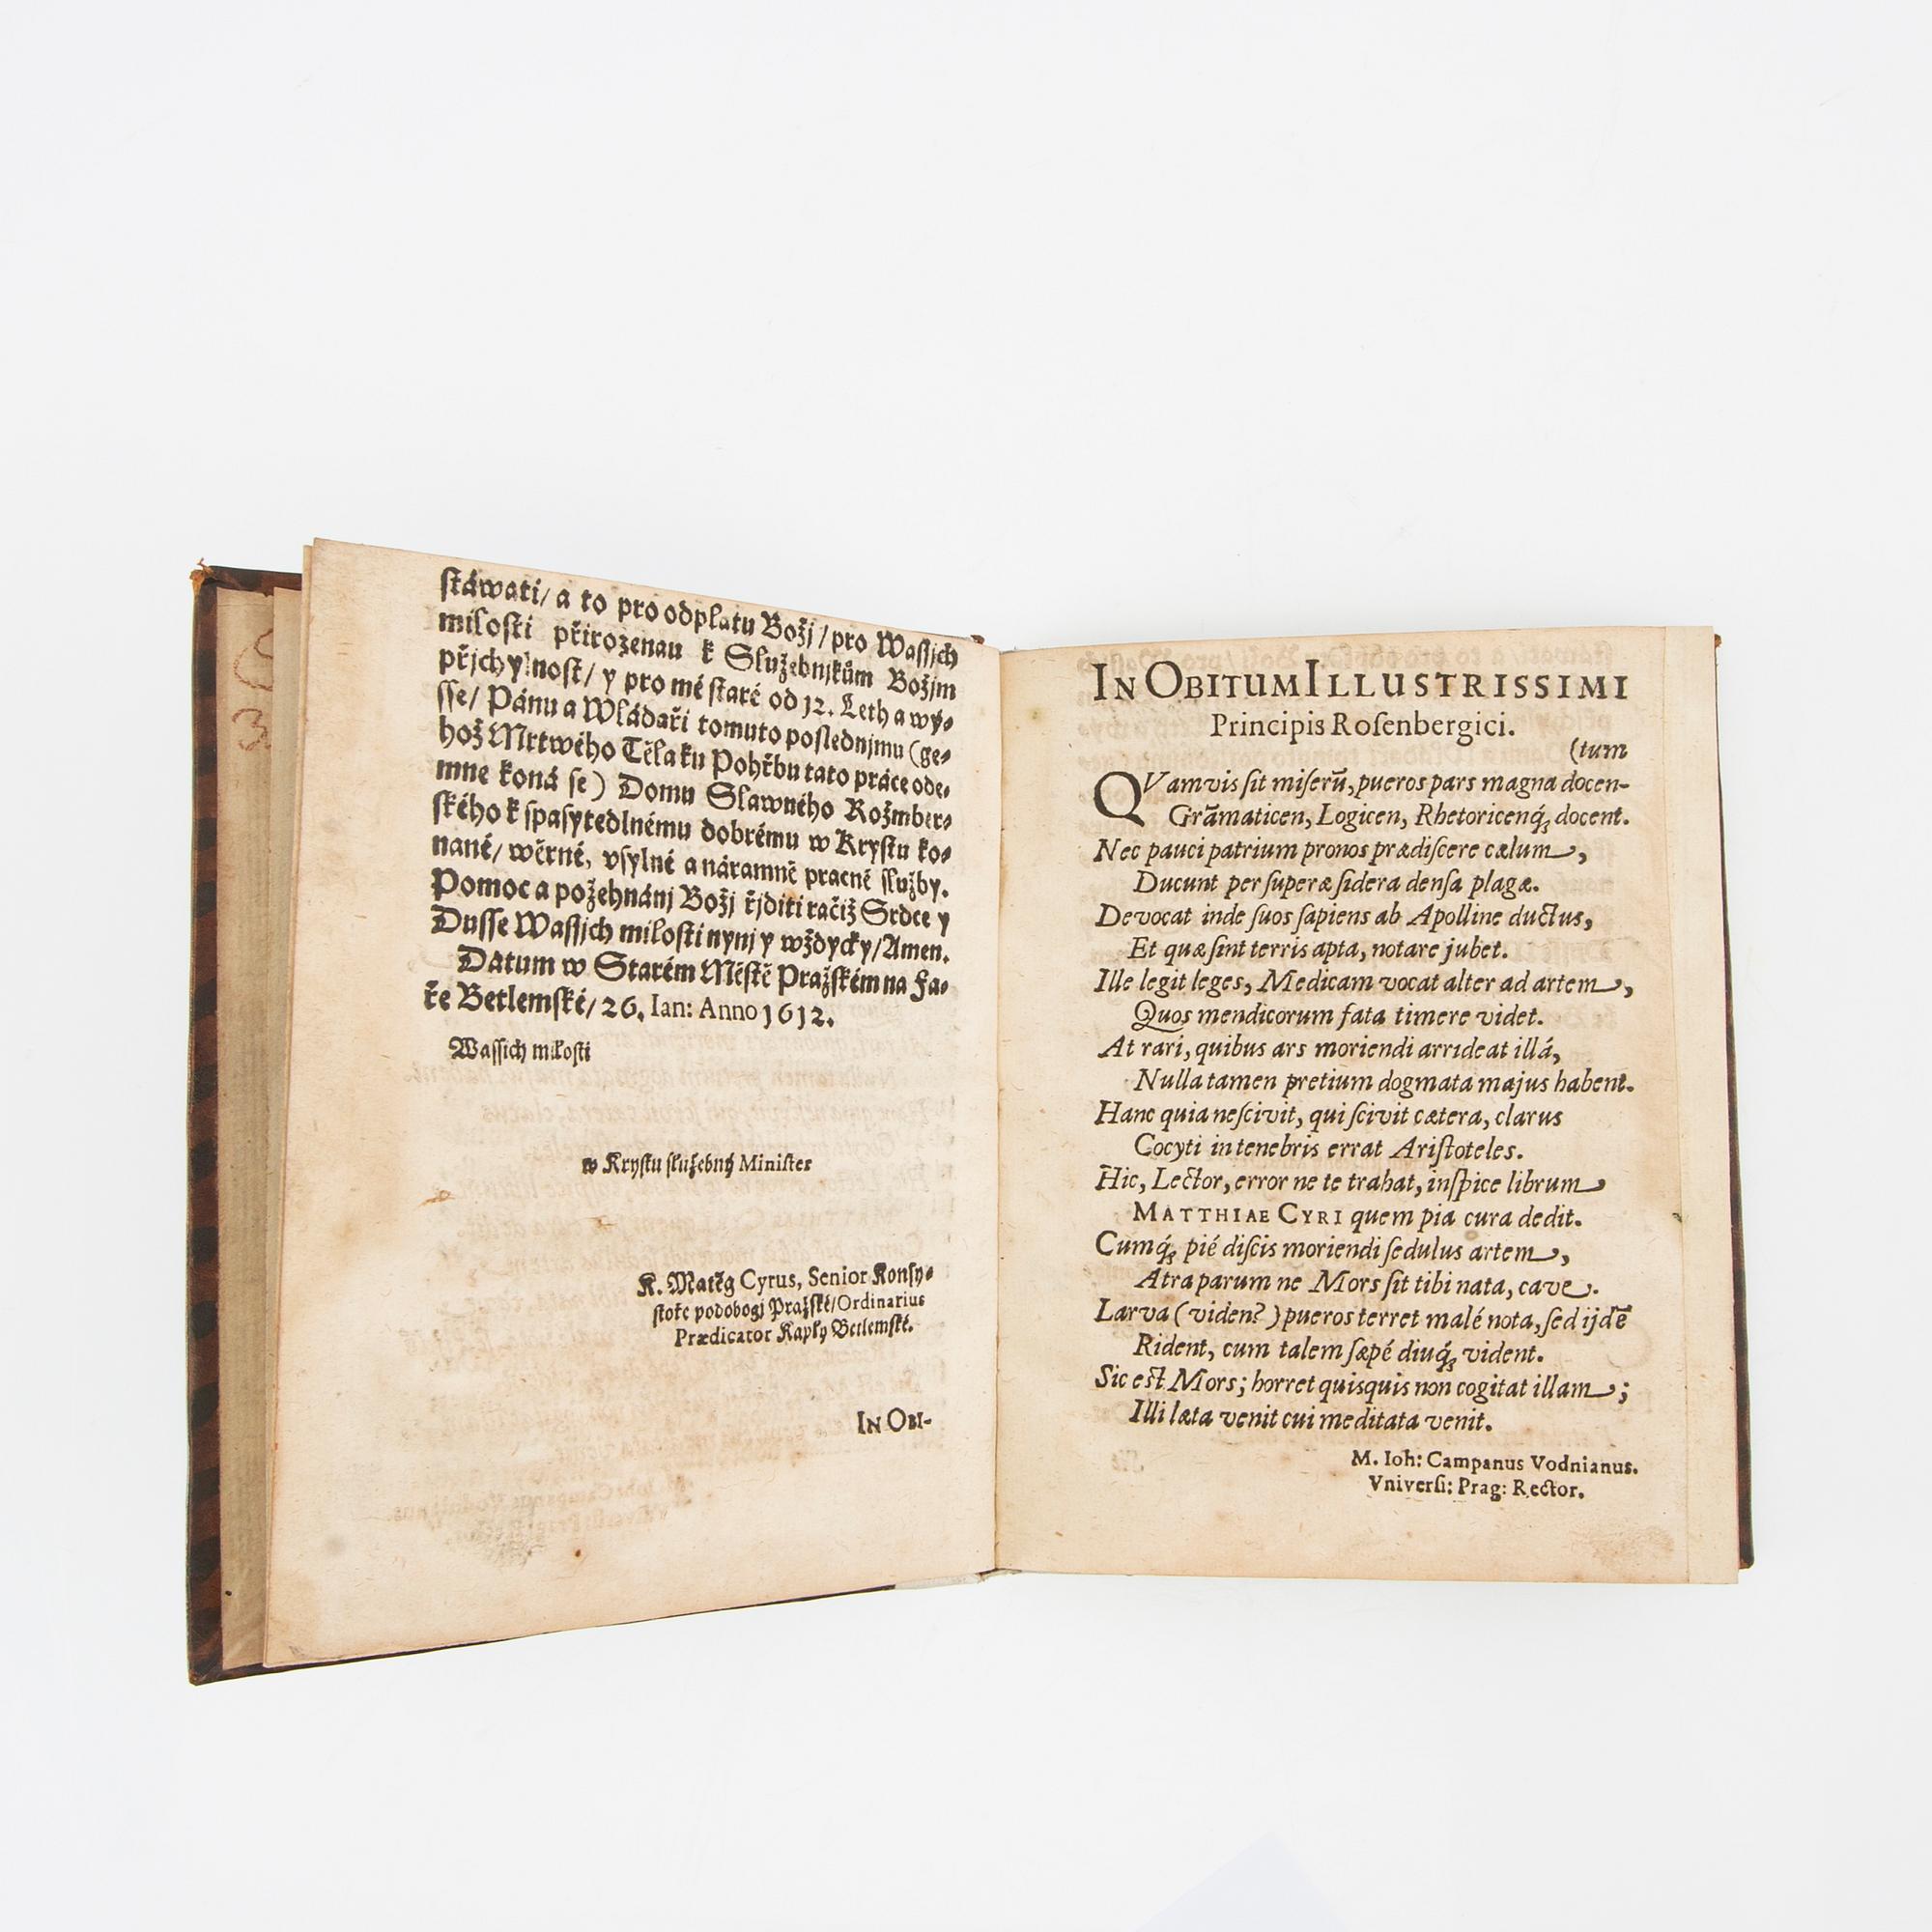 ſtáwati/ a to pro odplatu Božj / pro Waſſjch
miloſti přirozenau k Služebnjkům Božjm
přjchylnoſt/ y pro mé ſtaré od 12. Leth a wý⸗
ſſe/ Pánu a Wládaři tomuto poſlednjmu (ge⸗
hož Mrtwého Těla ku Pohřbu tato práce ode⸗
mne koná ſe) Domu Slawného Rožmber⸗
ſkého k ſpaſytedlnému dobrému w Kryſtu ko⸗
nané/ wěrné, vſylné a náramně pracné ſlužby.
Pomoc a požehnánj Božj řjditi račiž Srdce y
Duſſe Waſſjch miloſti nynj y wždycky/ Amen.
Datum w Starém Měſtě Pražſkém na Fa⸗
ře Betlemſké/ 26. Ian: Anno 1612.
Waſſich miloſti
w Kryſtu ſlužebný Miniſter
K. Matěg Cyrus, Senior Konſy⸗
ſtoře podobogj Pražſké/ Ordinarius
Prædicator Kaply Betlemſké.
IN OBI-
IN OBITUM ILLUSTRISSIMI
Principis Roſenbergici.
(tum
QVamvis ſit miſerū, pueros pars magna docen-
Grāmaticen, Logicen, Rhetoricenq́; docent.
Nec pauci patrium pronos prædiſcere cælum,
Ducunt per ſuperæ ſidera denſa plagæ.
Devocat inde ſuos ſapiens ab Apolline ductus,
Et quæ ſint terris apta, notare jubet.
Ille legit leges, Medicam vocat alter ad artem,
Quos mendicorum fata timere videt.
At rari, quibus ars moriendi arrideat illá,
Nulla tamen pretium dogmata majus habent.
Hanc quia neſcivit, qui ſcivit cætera, clarus
Cocyti in tenebris errat Ariſtoteles.
Hic, Lector, error ne te trahat, inſpice librum
MATTHIAE CYRI quem pia cura dedit.
Cumq́; pié diſcis moriendi ſedulus artem,
Atra parum ne Mors ſit tibi nata, cave.
Larva (viden?) pueros terret malé nota, ſed ijdē
Rident, cum talem ſæpé diuq́; vident.
Sic eſt Mors; horret quisquis non cogitat illam;
Illi læta venit cui meditata venit.
M. Ioh: Campanus Vodnianus.
Vniverſi: Prag: Rector.